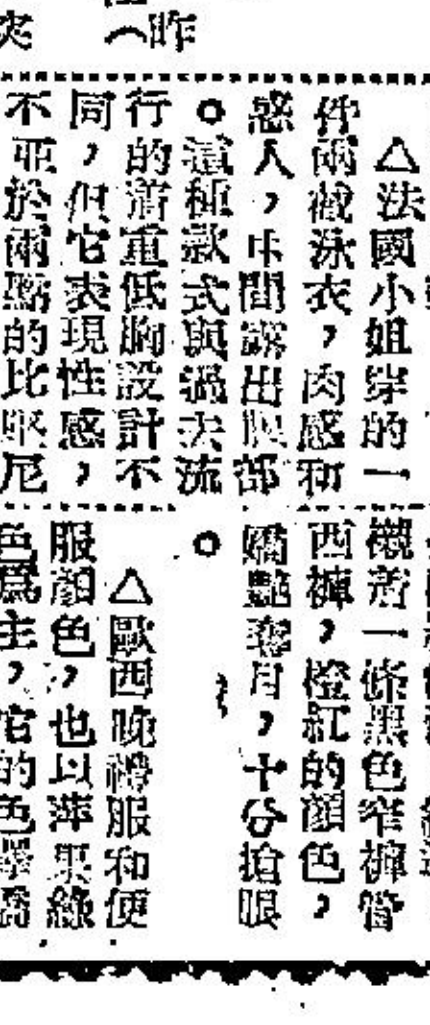 突
（昨
△法國小姐穿的一
件兩截泳衣，肉感和
惑人，中間露出眼部
。這種款式與過去流
行的着重低胸設計不
同，但它表現性感，
不亞於兩點的比堅尼
襯着一條黑色窄褲管
西褲，橙紅的顏色，
嬌艷奪目，十分搶眼
。
△歐西晚禮服和便
服顏色，也以萍果綠
色爲主，它的色澤嬌